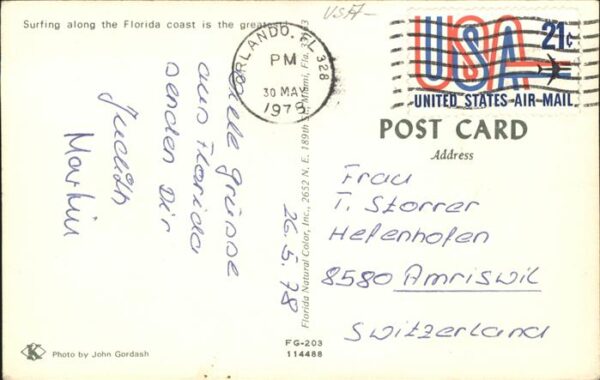 Surfing along the Florida coast is the greatest!
USA-
ORLANDO, FL 328
PM
30 MAY
1978
USA 21c
UNITED STATES AIR MAIL
POST CARD
Address
26.5.78
Viele Grüsse
aus Florida
senden Dir
Judith
Martin
Frau
T. Storrer
Hefenhofen
8580 Amriswil
Switzerland
Florida Natural Color, Inc., 2652 N. E. 189th St., Miami, Fla.
FG-203
114488
K
Photo by John Gordash